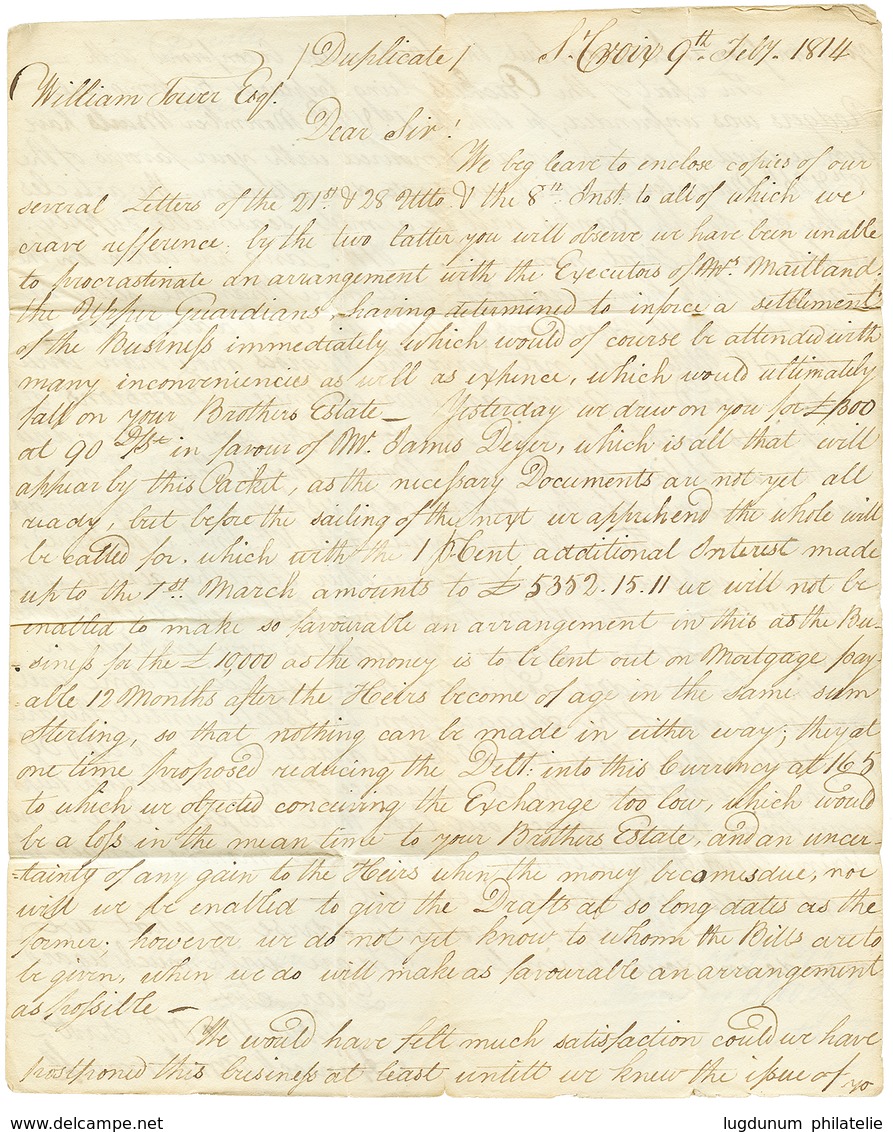 /Duplicate/ St Croix 9th Feby. 1814
William Tower Esqr.
Dear Sir!
We beg leave to enclose copies of our
several Letters of the 21st & 28 Ulto & the 8th Inst. to all of which we
crave refference, by the two latter you will observe we have been unable
to procrastinate an arrangement with the Executors of Mrs Maitland.
the Upper Guardians, having determined to inforce a settlement
of the Business immediately which would of course be attended with
many inconveniencies as well as expence, which would ultimately
fall on your Brothers Estate — Yesterday we drew on you for
at 90 in favour of Mr. James Deyer, which is all that will
appear by this Packet, as the necessary Documents are not yet all
ready, but before the sailing of the next we apprehend the whole will
be called for, which with the 1 pCent additional Interest made
up to the 1st. March amounts to £5352.15.11 we will not be
enabled to make so favourable an arrangement in this as the Bu-
-siness for the £10,000 as the money is to be lent out on Mortgage pay-
-able 12 Months after the Heirs become of age in the same sum
Sterling, so that nothing can be made in either way; they at
one time proposed reducing the Debt: into this Currency at 165
to which we objected conceiving the Exchange too low, which would
be a loss in the mean time to your Brothers Estate, and an uncer-
-tainty of any gain to the Heirs when the money becomes due, nor
will we be enabled to give the Drafts at so long dates as the
former; however we do not yet know to whom the Bills are to
be given, when we do will make as favourable an arrangement
as possible —
We would have felt much satisfaction could we have
postponed this business at least untill we knew the issue of
yo
www.delcampe.net
lugdunum philatelie